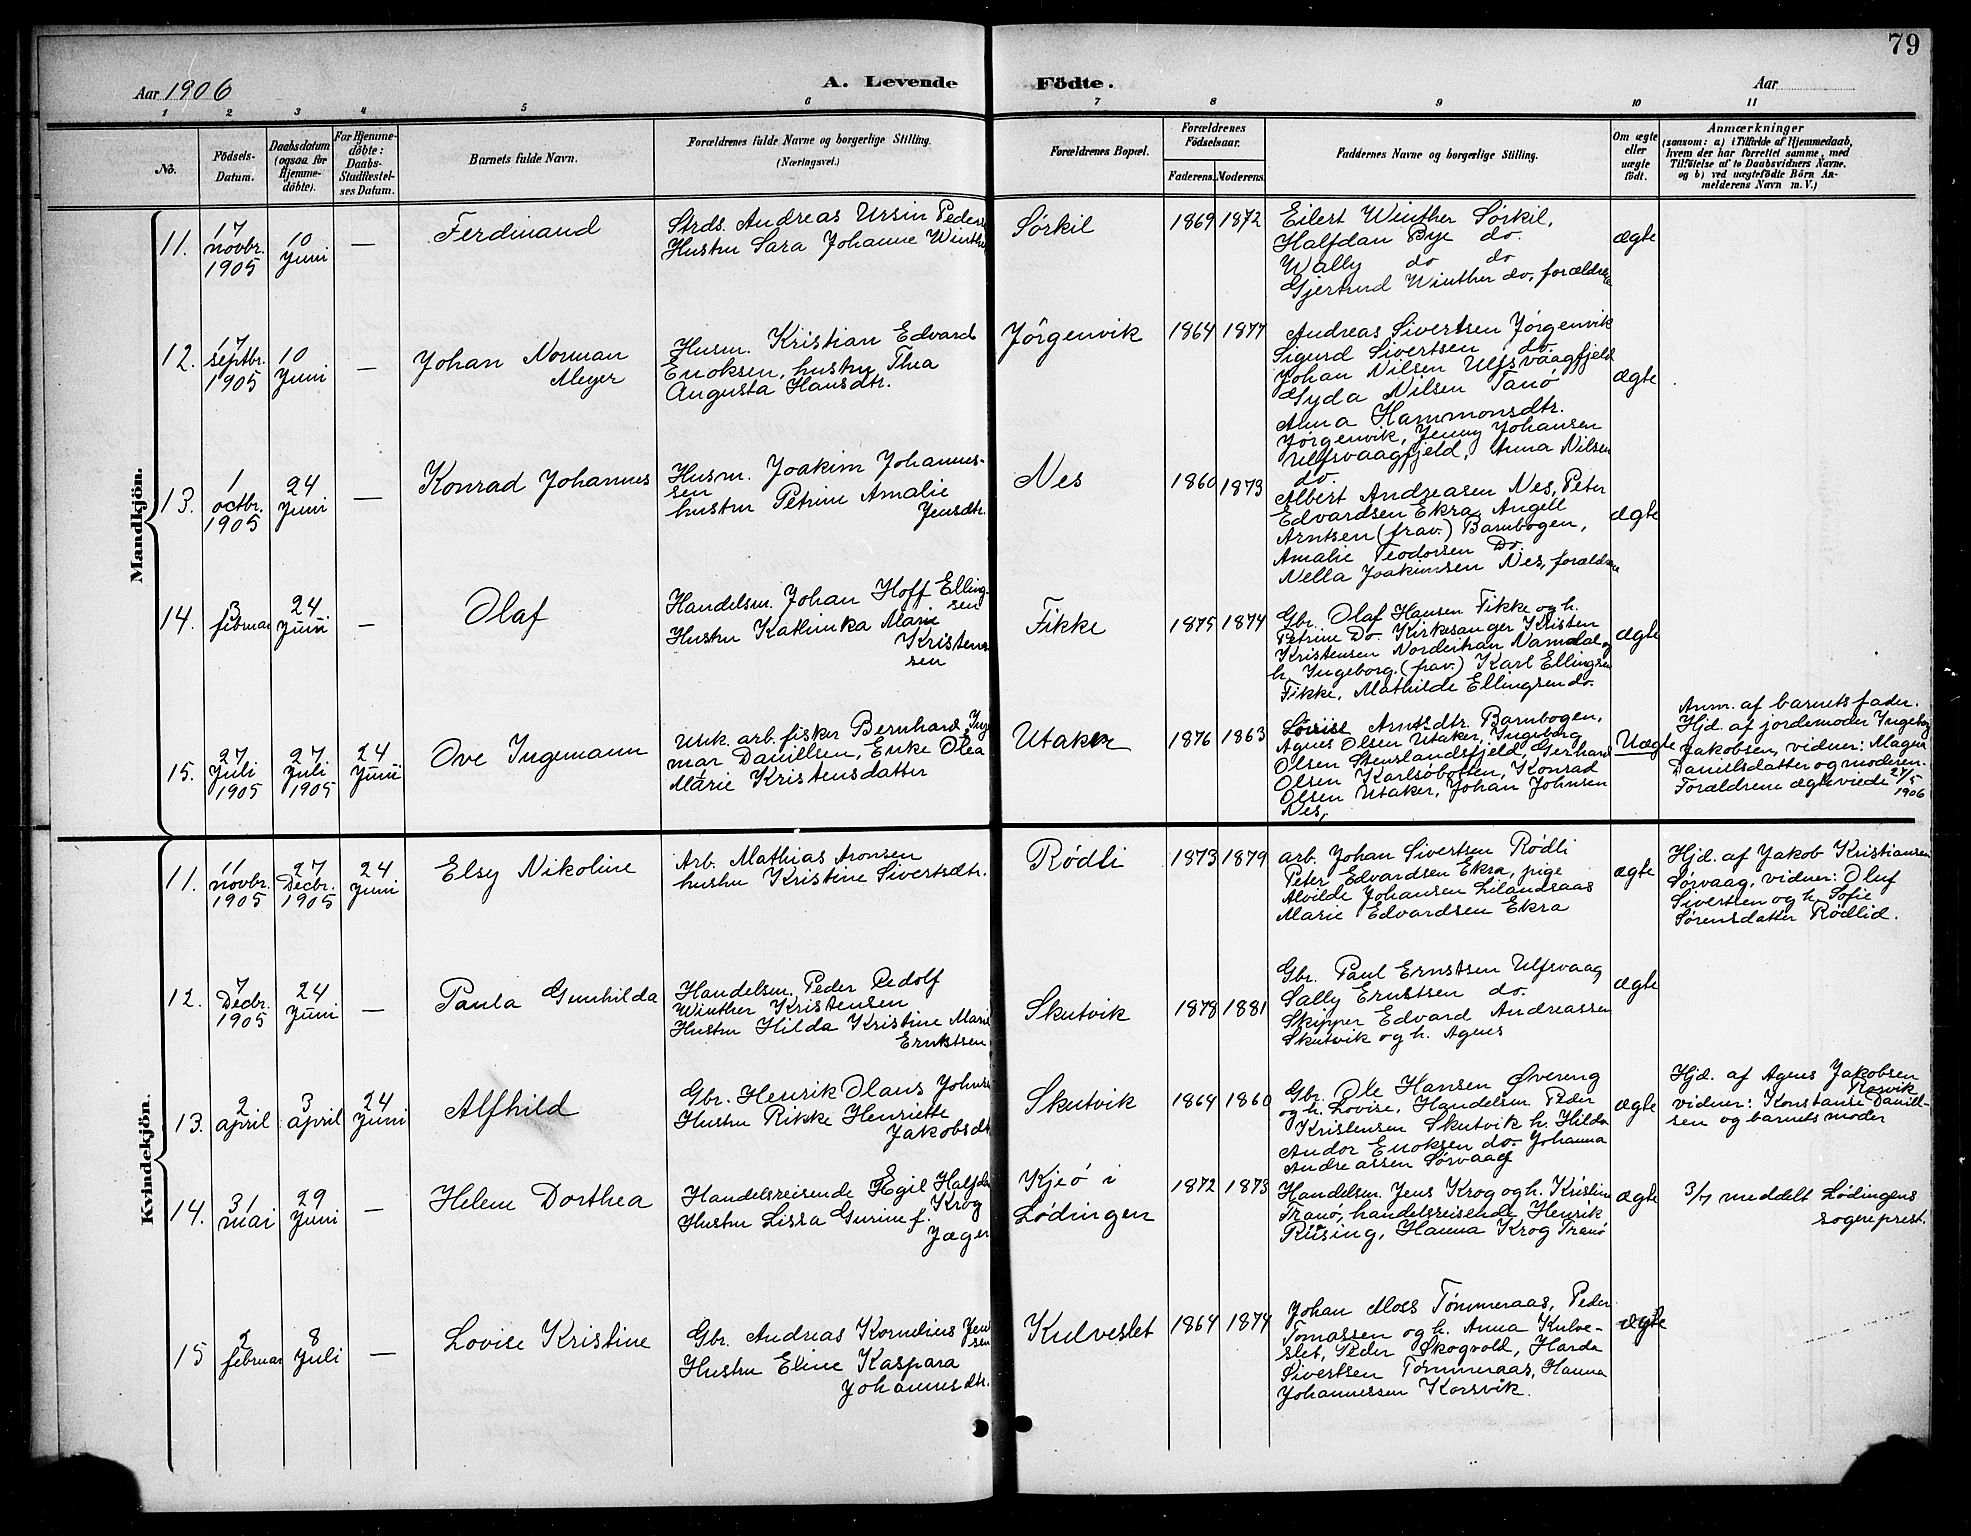 79
Aar 1906 A. Levende Födte. Aar
1 2 3 4 5 6 7 8 9 10 11
No.
Födsels-
Datum.
Daabsdatum
(ogsaa for
Hjemme-
döbte).
For Hjemme-
döbte:
Daabs-
Stadfæstel-
ses Datum.
Barnets fulde Navn.
Forældrenes fulde Navne og borgerlige Stilling.
(Næringsvei.)
Forældrenes Bopæl.
Forældrenes
Födselsaar.
Faderens. Moderens.
Faddernes Navne og borgerlige Stilling.
Om ægte
eller
uægte
födt.
Anmærkninger
(saasom: a) i Tilfælde af Hjemmedaab,
hvem der har forrettet samme, med
Tilföielse af to Daabsvidners Navne,
og b) ved uægtefödte Börn An-
melderens Navn m. V.)
Mandkjön.
11.
17
novbr.
1905
10
Juni
—
Ferdinand
Strds. Andreas Ursin Peders
Hustru Sara Johanne Winth
Sørkil
1869 1872
Eilert Winther Sørkil,
Halfdan Bye do.
Wally do do
Gjertrud Winther do, forældre
ægte
12.
17
septbr.
1905
10
Juni
—
Johan Norman
Meyer
Husm. Kristian Edvard
Enoksen, hustru Thea
Augusta Hansdtr.
Jörgenvik
1864 1877
Andreas Sivertsen Jörgenvik
Sigurd Sivertsen do.
Johan Nilsen Ulfsvaagfjeld
Gyda Nilsen Tanö,
Anna Hammonsdtr.
Jörgenvik, Jenny Johansen
Ulfsvaagfjeld, Anna Nilsen
do.
ægte
13.
1
octbr.
1905
24
Juni
—
Konrad Johannes
Husm. Joakim Johannes-
sen
hustru Petrine Amalie
Jensdtr.
Nes
1860 1873
Albert Andreasen Nes, Peter
Edvardsen Ekra, Angell
Arntsen (frav.) Barnbogen,
Amalie Teodorsen Do.
Nella Joakimsen Nes, forældre
ægte
14.
3
februar
24
Juni
—
Olaf
Handelsm. Johan Hoff Elling-
sen
Hustru Kathinka Marie
Kristens
sen
Fikke
1875 1874
Gbr. Olaf Hansen Fikke og h.
Petrine Do. Kirkesanger Kristen
Kristensen Nordenkran Namdal og
h. Ingeborg. (frav.) Karl Ellingsen
Fikke, Mathilde Ellingsen do.
ægte
15.
27
Juli
1905
27
Juli
1905
24
Juni
Ove Ingemann
Unk. arb. fisker Bernhard Inge
mar Daniellsen, Enke Olea
Marie Kristensdatter
Utaker
1876 1863
Lovise Arntsdtr. Barnbogen,
Agnes Olsen Utaker, Ingeborg
Olsen Stenslandsfjeld, Gerhard
Olsen Karlsöbotten, Konrad
Olsen Utaker, Johan Johnsen
Nes,
Uægte
Anm. af barnets fader.
Hjd. af jordemoder Ingeborg
Jakobsen, vidner: Magna
Danielsdatter og moderen.
Forældrene ægteviede 27/5
1906
Kvindekjön.
11.
11
novbr.
1905
27
Decbr.
1905
24
Juni
Elsy Nikoline
Arb. Mathias Aronsen
hustru Kristine Sivertsdtr.
Rødli
1873 1879
arb. Johan Sivertsen Rødli
Peter Edvardsen Ekra, pige
Alvilde Johansen Lilandsaas
Marie Edvardsen Ekra
ægte
Hjd. af Jakob Kristiansen
Sørvaag, vidner: Oluf
Sivertsen og h. Sofie
Sørensdatter Rødlid.
12.
7
Decbr.
1905
24
Juni
—
Paula Gunhilda
Handelsm. Peder Redolf
Winther Kristensen
Hustru Hilda Kristine Marie
Ernstsen
Skutvik
1878 1881
Gbr. Paul Ernstsen Ulfsvaag
Sally Ernstsen do.
Skipper Edvard Andreassen
Skutvik og h. Agnes
ægte
13.
2
april
3
april
24
Juni
Alfhild
Gbr. Henrik Olaus Johns
Hustru Rikke Henriette
Jakobsdt
Skutvik
1864 1860
Gbr. Ole Hansen Øvereng
og h. Lovise, Handelsm. Peder
Kristensen Skutvik h. Hilda
Andor Enoksen do. Johanna
Andreassen Sørvaag
ægte
Hjd. af Agnes Jakobsen
Rosvik
vidner: Konstanse Daniel-
sen og barnets moder
14.
31
mai
29
Juni
—
Helene Dorthea
Handelsreisende Egil Halfda
Krog
Hustru Lissa Gurine f.
Jæger
Kjeö i
Lödingen
1872 1873
Handelsm. Jens Krog og h. Kristine
Tranö, handelsreisende Henrik
Riising, Hanna Krog Tranö
ægte
3/7 meddelt Lödingens
sogneprest.
15
2
februar
8
Juli
—
Lovise Kristine
Gbr. Andreas Kornelius Jen
sen
Hustru Eline Kaspara
Johannesdtr.
Kulveslet
1864 1874
Johan Moss Tømmeraas, Peder
Tomassen og h. Anna Kulve-
slet, Peder Skogvold, Harda
Sivertsen Tømmeraas, Hanna
Johannessen Korsvik.
ægte